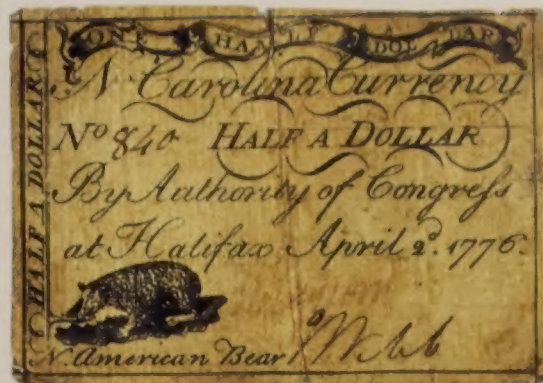 ONE HALF DOLLAR
HALF A DOLLAR
N Carolina Currency
No 840 HALF A DOLLAR
By Authority of Congress
at Halifax April 2d. 1776.
N. American Bear
Webb